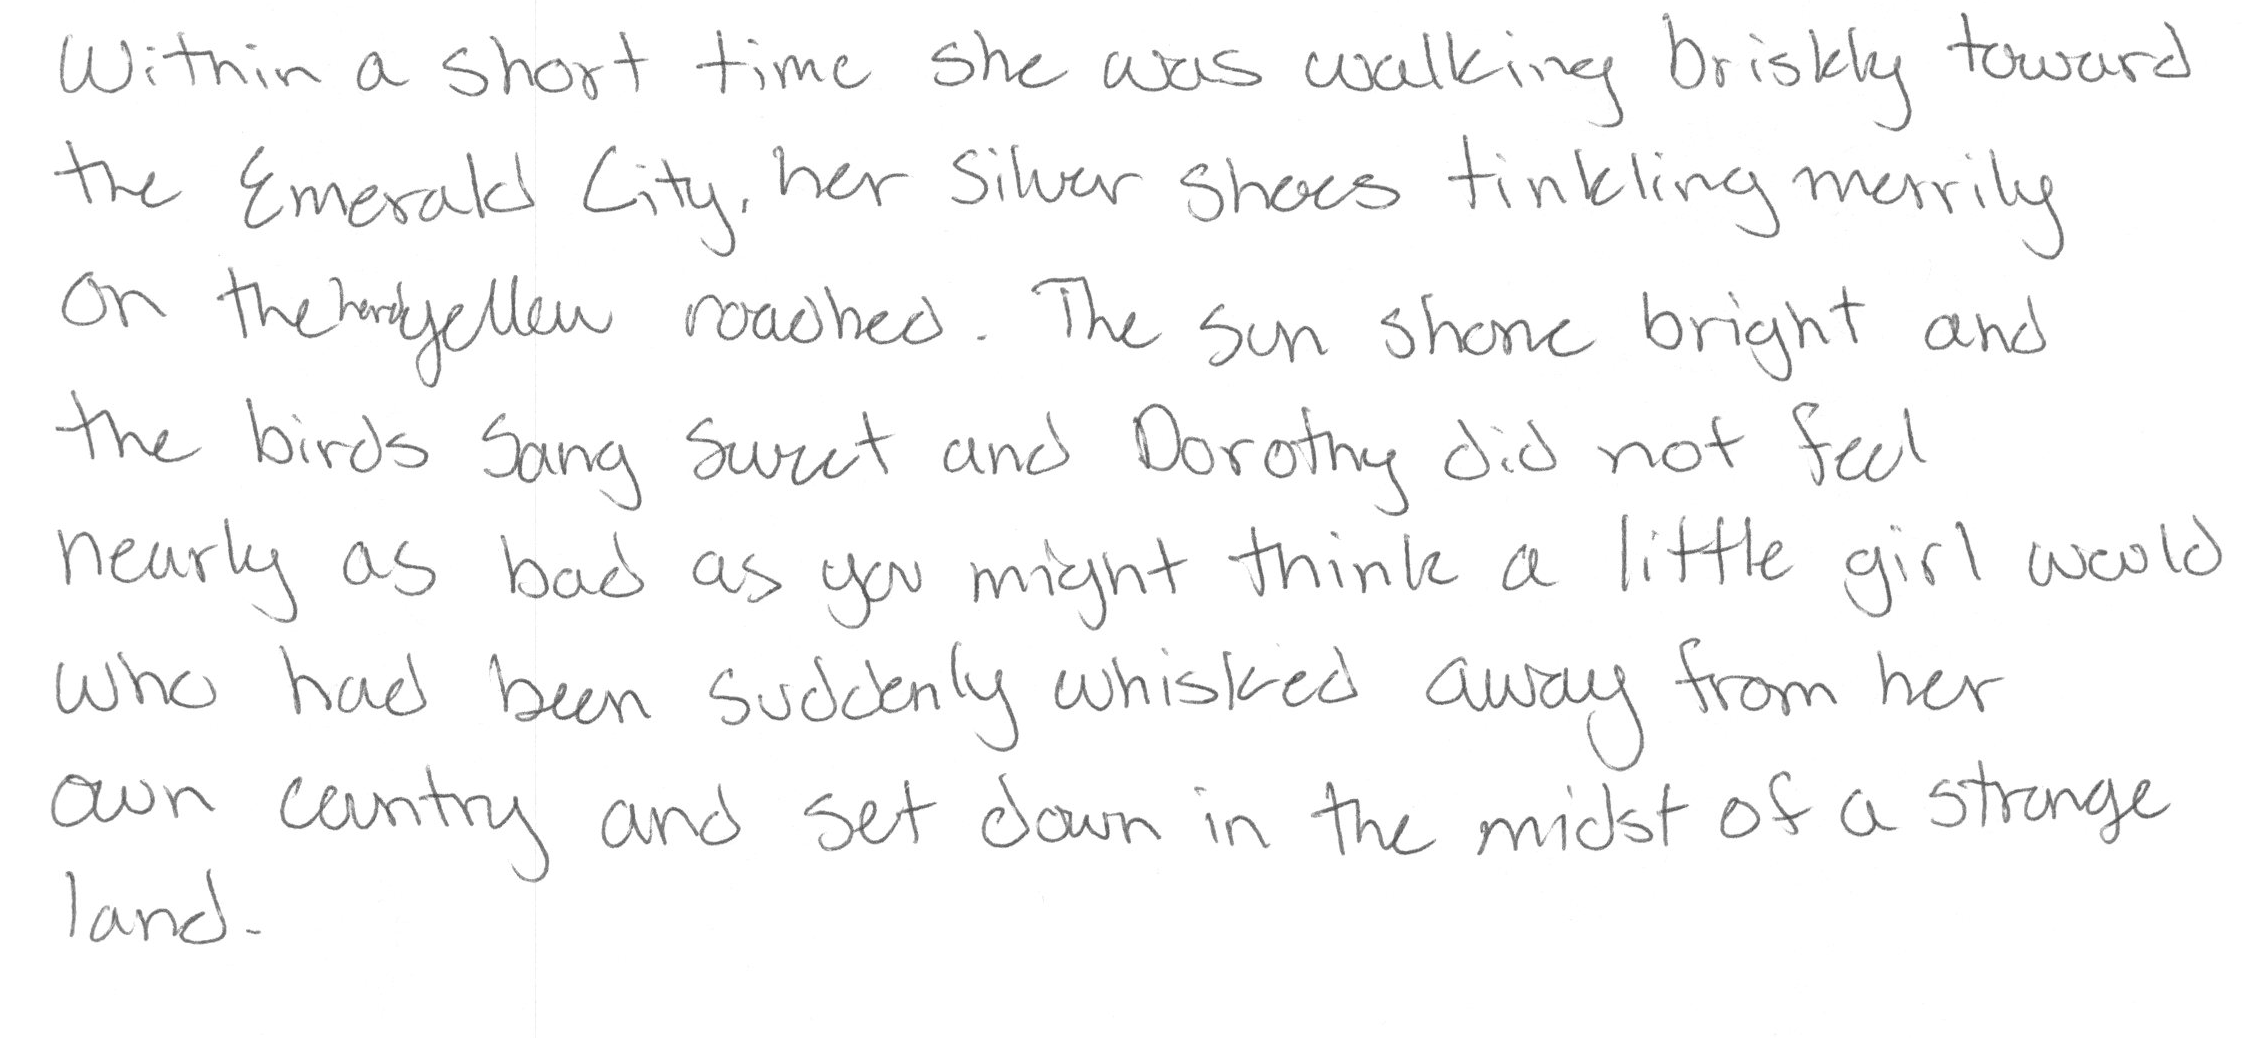 Within a short time she was walking briskly toward
the Emerald City, her Silver Shoes tinkling merrily
on the hard yellow roadbed. The sun shone bright and
the birds sang sweet and Dorothy did not feel
nearly as bad as you might think a little girl would
who had been suddenly whisked away from her
own country and set down in the midst of a strange
land.